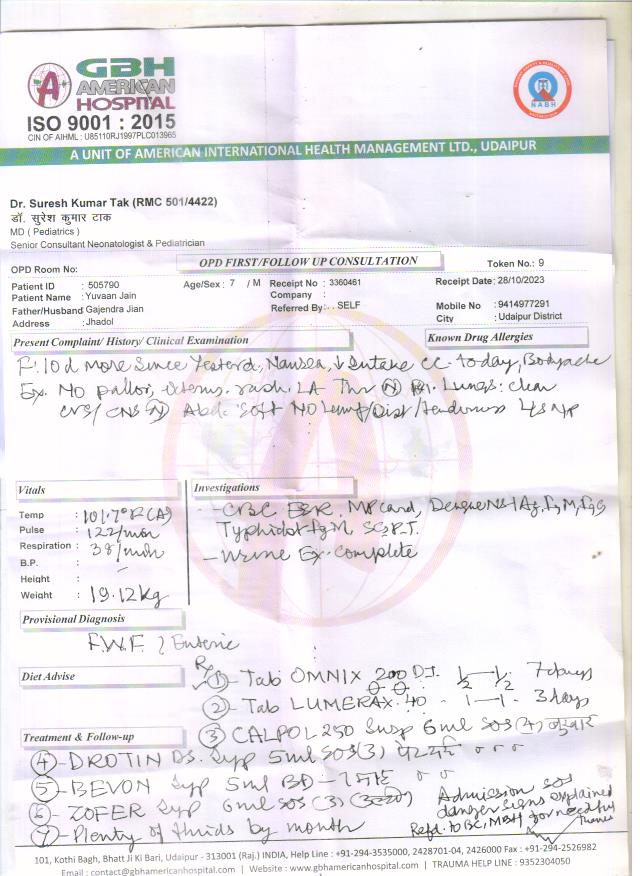 GBH
AMERICAN
HOSPITAL
ISO 9001 : 2015
CIN OF AIHML : U85110RJ1997PLC013965
NABH
A UNIT OF AMERICAN INTERNATIONAL HEALTH MANAGEMENT LTD., UDAIPUR
Dr. Suresh Kumar Tak (RMC 501/4422)
डॉ. सुरेश कुमार टाक
MD ( Pediatrics )
Senior Consultant Neonatologist & Pediatrician
OPD FIRST/FOLLOW UP CONSULTATION
Token No.: 9
OPD Room No:
Patient ID : 505790 Age/Sex : 7 / M Receipt No : 3360461 Receipt Date: 28/10/2023
Patient Name : Yuvaan Jain Company :
Father/Husband Gajendra Jian Referred By: . . SELF Mobile No : 9414977291
Address : Jhadol City : Udaipur District
Present Complaint/ History/ Clinical Examination Known Drug Allergies
F: 10d More Since Yesterd, Nausea, ↓ Intake CC- today, Bodyache
Ex. No pallor, icterus, rash. LA Thr (N) Lungs: clear
CVS/ CNS (N) Abd: Soft No Lump/Dist/tenderness
Vitals Investigations
Temp : 101.7°F (A)
Pulse : 122/min
Respiration : 38/min
B.P. : -
Height :
Weight : 19.12kg
- CBC ESR, MP card, Dengue NS1 Ag, IgM, IgG
Typhidot IgM, SGPT.
- Urine Ex. Complete
Provisional Diagnosis
F.W.F. ? Enteric
Diet Advise
Rx
1 - Tab OMNIX 200 DT. 1/2—1/2. 7 days
2 - Tab LUMERAX. 40 - 1—1. 3 days
Treatment & Follow-up
3 CALPOL 250 Susp 6ml SOS (4) बुखार
4 - DROTIN DS. Syp 5ml SOS (3) पेट दर्द
5 - BEVON Syp 5ml BD -
6 - ZOFER Syp 6ml SOS (3) (उल्टी)
7 - Plenty of fluids by mouth
Admission SOS
danger signs explained
Refd. to BC, MBH for needful
Thanks
101, Kothi Bagh, Bhatt Ji Ki Bari, Udaipur - 313001 (Raj.) INDIA, Help Line : +91-294-3535000, 2428701-04, 2426000 Fax : +91-294-2526982
Email : contact@gbhamericanhospital.com | Website : www.gbhamericanhospital.com | TRAUMA HELP LINE : 9352304050